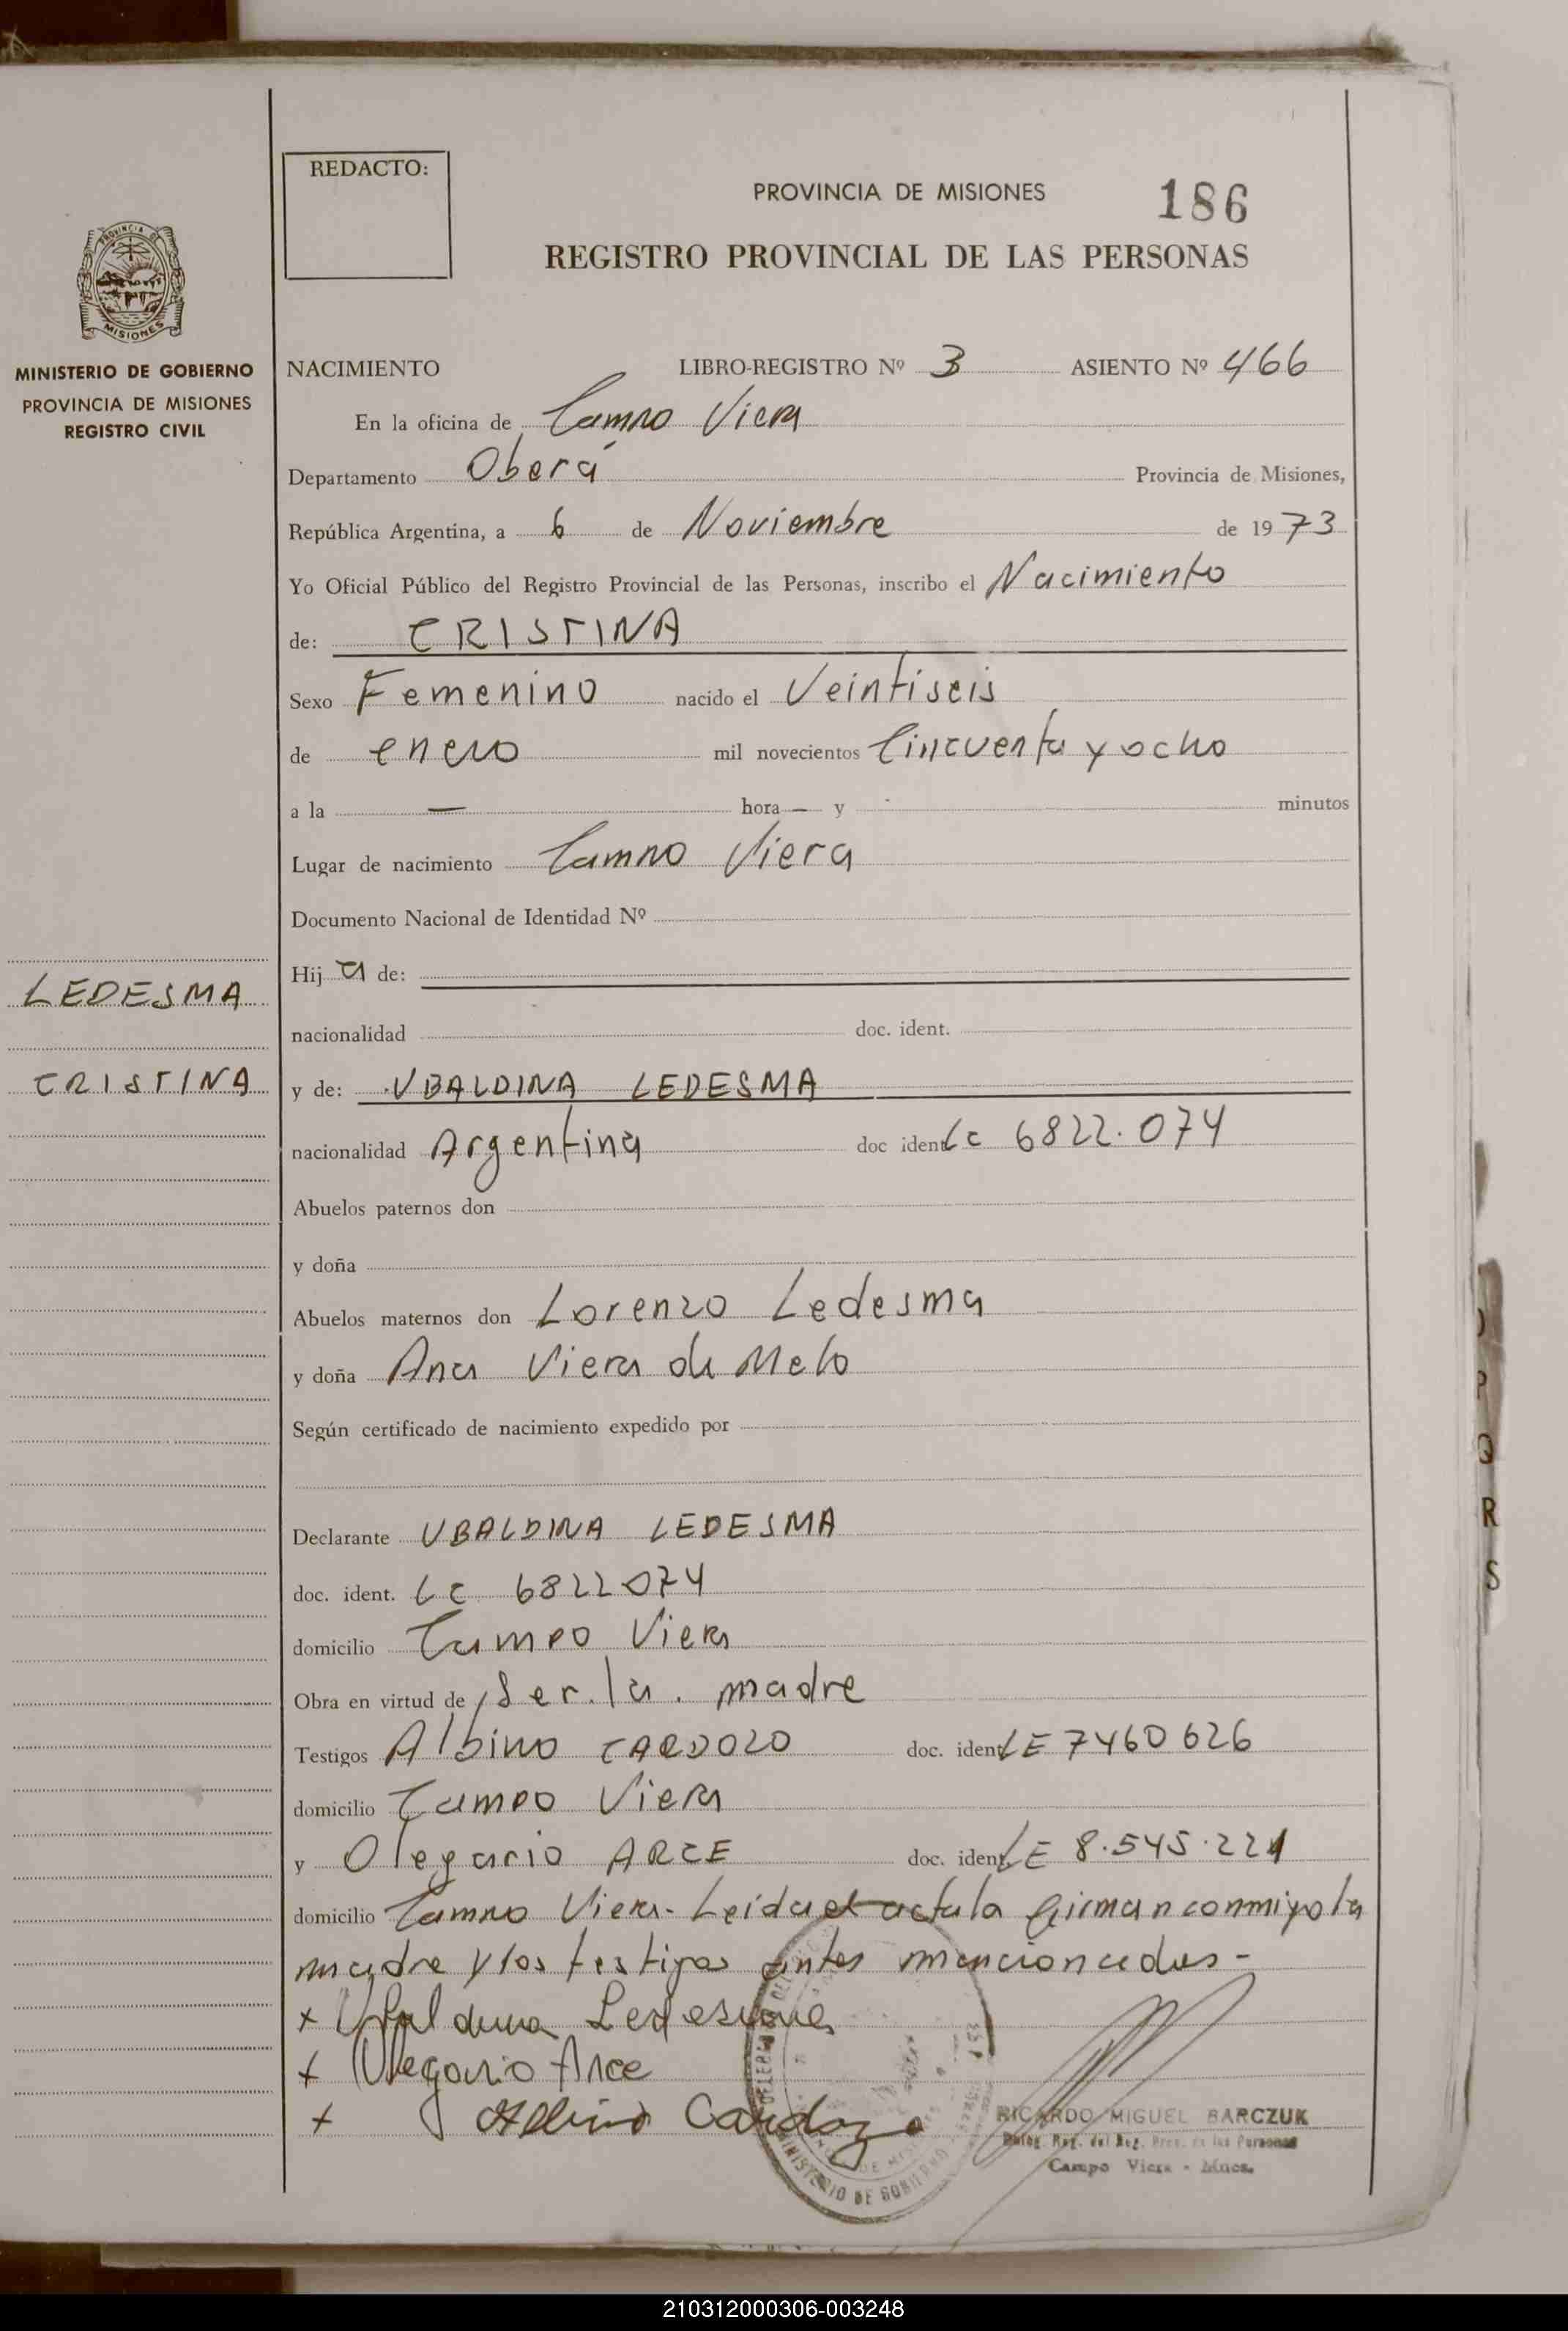 REDACTO:
PROVINCIA DE MISIONES
186
REGISTRO PROVINCIAL DE LAS PERSONAS
PROVINCIA DE
MISIONES
MINISTERIO DE GOBIERNO
PROVINCIA DE MISIONES
REGISTRO CIVIL
NACIMIENTO LIBRO-REGISTRO Nº 3 ASIENTO Nº 466
En la oficina de Campo Viera
Departamento Oberá Provincia de Misiones,
República Argentina, a 6 de Noviembre de 1973
Yo Oficial Público del Registro Provincial de las Personas, inscribo el Nacimiento
de: CRISTINA
Sexo Femenino nacido el Veintiseis
de enero mil novecientos Cincuenta y ocho
a la — hora — y minutos
Lugar de nacimiento Campo Viera
Documento Nacional de Identidad Nº
Hij a de:
LEDESMA
nacionalidad doc. ident.
CRISTINA
y de: UBALDINA LEDESMA
nacionalidad Argentina doc ident LC 6822.074
Abuelos paternos don
y doña
Abuelos maternos don Lorenzo Ledesma
y doña Ana Viera de Melo
Según certificado de nacimiento expedido por
Declarante UBALDINA LEDESMA
doc. ident. LC 6822074
domicilio Campo Viera
Obra en virtud de Ser. la. madre
Testigos Albino CARDOZO doc. ident LE 7460626
domicilio Campo Viera
y Olegario ARCE doc. ident. LE 8.545.221
domicilio Campo Viera- Leida el acta la firman conmigo la
madre y los testigos antes mencionados-
x Ubaldina Ledesma
x Olegario Arce
x Albino Cardozo
RICARDO MIGUEL BARCZUK
Campo Viera - Mnes.
MINISTERIO DE GOBIERNO
P
Q
R
S
210312000306-003248